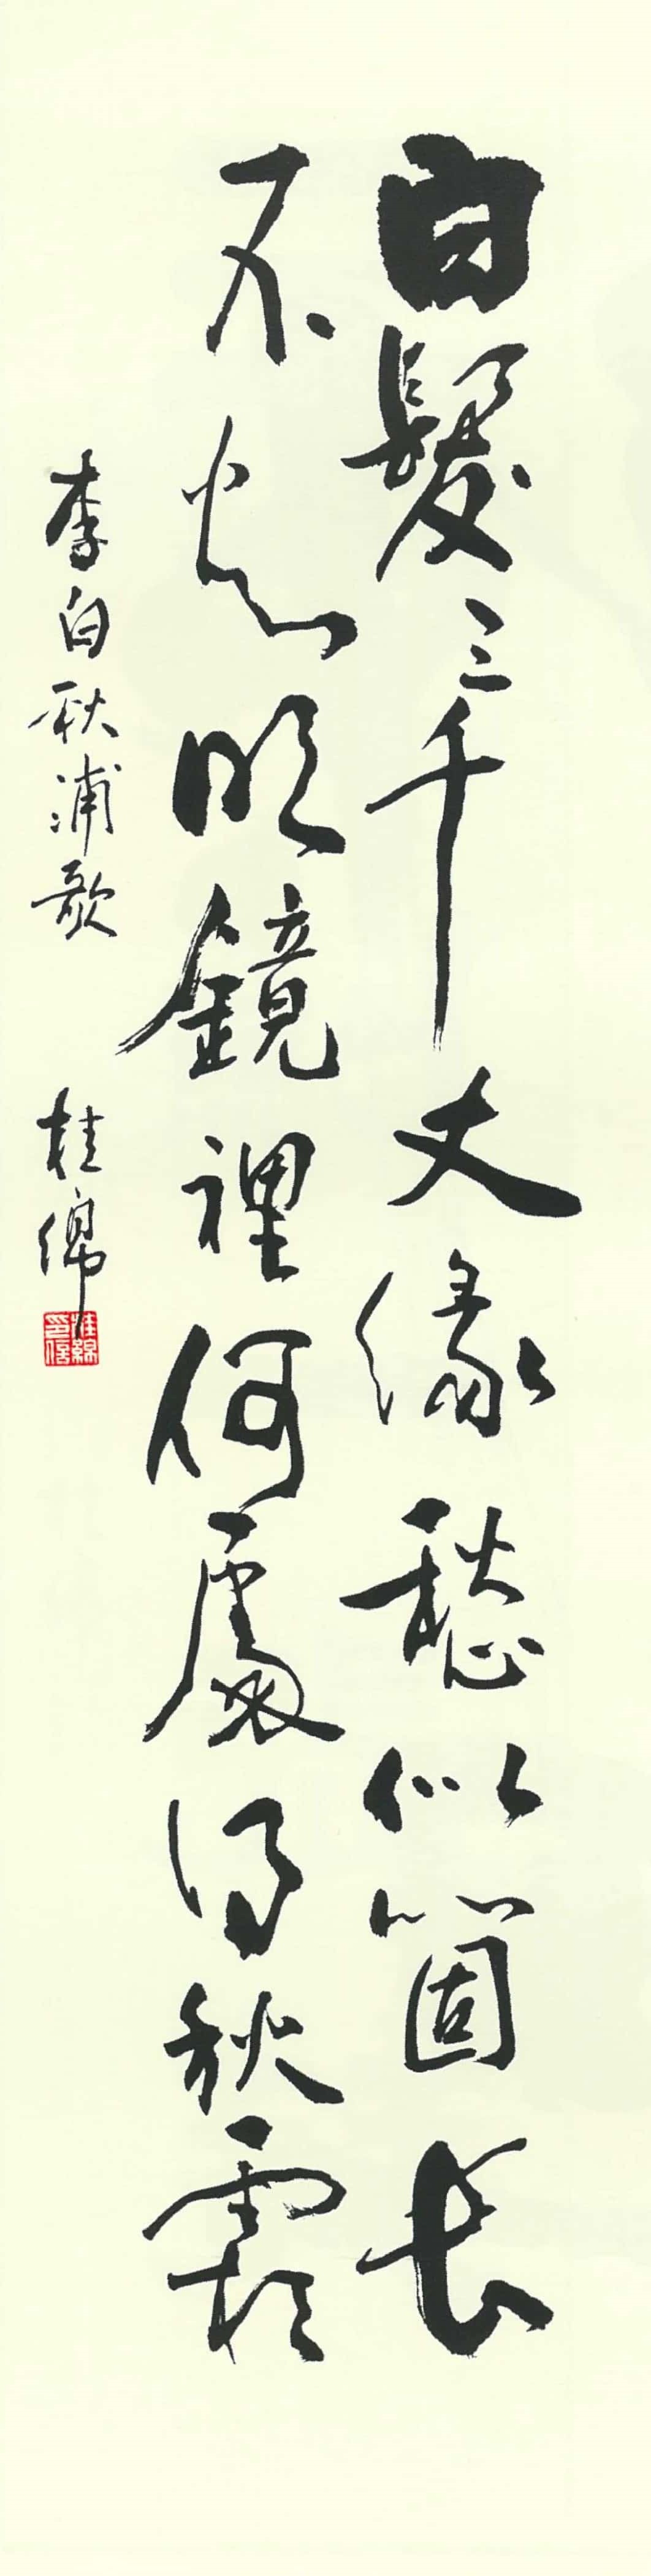 白髮三千丈緣愁似箇長
不知明鏡裡何處得秋霜
李白秋浦歌 桂綿
桂綿
印信